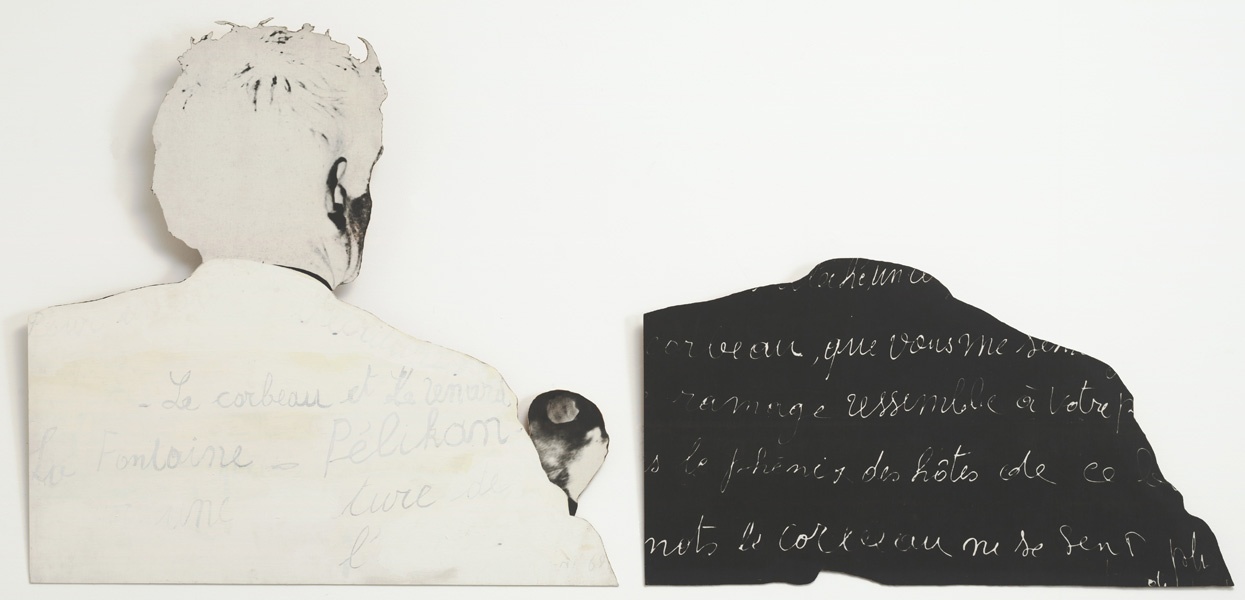 - Le corbeau et Le renard
La Fontaine - Pélikan
une ture de
l'
corveau, que vous me sem
ramage ressemble à votre p
s le phénix des hôtes de ce
mots le correau ne se sent